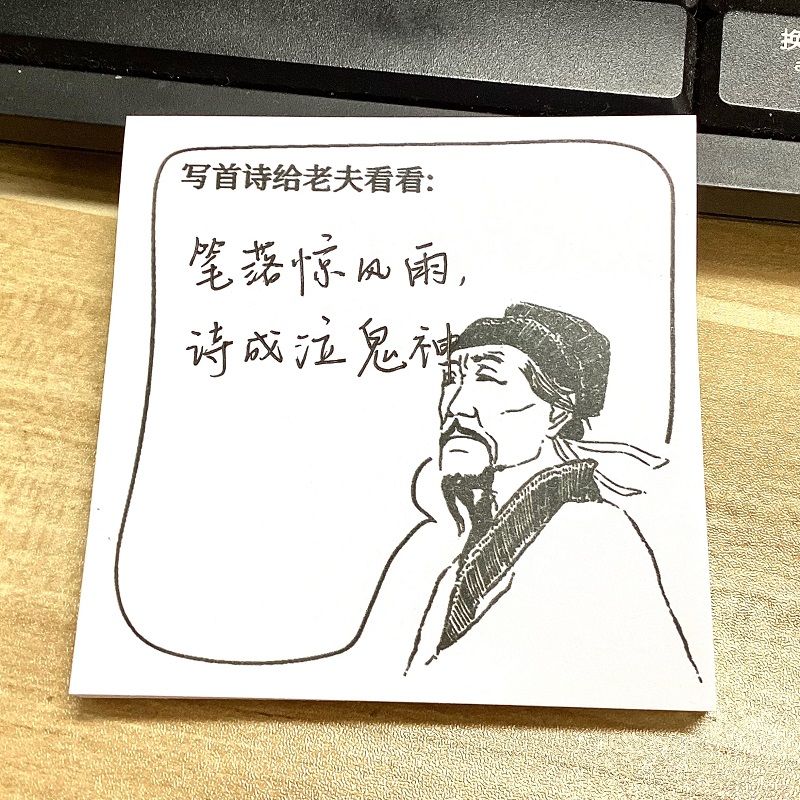 换
写首诗给老夫看看:
笔落惊风雨,
诗成泣鬼神